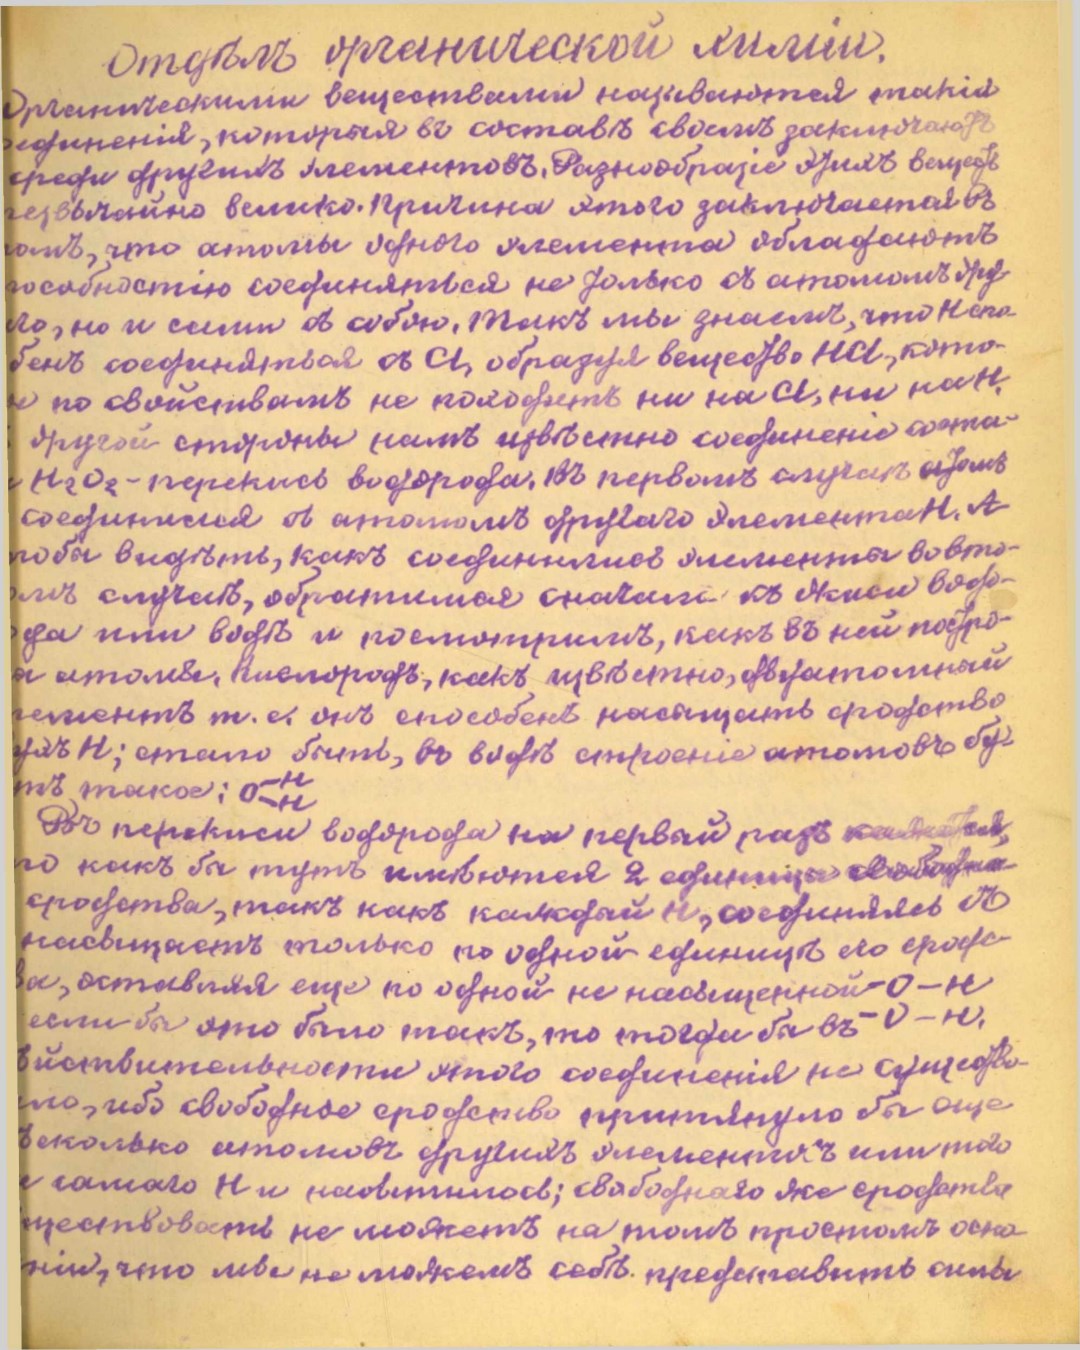 Отдѣлъ органической химіи.
Органическими веществами называются такія
единенія, которыя въ составѣ своемъ заключаютъ
среди другихъ элементовъ. Разнообразіе этихъ веществъ
резвычайно велико. Причина этого заключается въ
томъ, что атомы одного элемента обладаютъ
пособностію соединяться не только съ атомомъ дру
его, но и сами съ собою. Такъ мы знаемъ, что H спо
бенъ соединяться съ Cl, образуя вещество HCl, кото-
е по свойствамъ не походитъ ни на Cl, ни на H.
другой стороны намъ извѣстно соединеніе соста-
H₂O₂ - перекись водорода. Въ первомъ случаѣ атомъ
соединился съ атомомъ другаго элемента H. А
чтобы видѣть, какъ соединились элементы во вто-
омъ случаѣ, обратимся сначала къ окиси водо-
ода или водѣ и посмотримъ, какъ въ ней постро-
ы атомы. Кислородъ, какъ извѣстно, двуатомный
лементъ т. е. онъ способенъ насыщать сродство
ухъ H; стало быть, въ водѣ строеніе атомовъ бу-
тъ такое: O-H
-H
Въ перекиси водорода на первый разъ кажется,
то какъ бы тутъ имѣются 2 единицы свободныя
сродства, такъ какъ каждый H, соединяясь съ O
насыщаетъ только по одной единицѣ его сродс-
ва, оставляя еще по одной не насыщенной -O-H
если бы это было такъ, то тогда бы въ -O-H.
ѣйствительности этого соединенія не существо-
ало, ибо свободное сродство притянуло бы еще
ѣсколько атомовъ другихъ элементовъ или того
е самаго H и насытилось; свободнаго же сродства
уществовать не можетъ на томъ простомъ осно
ніи, что мы не можемъ себѣ представить силы